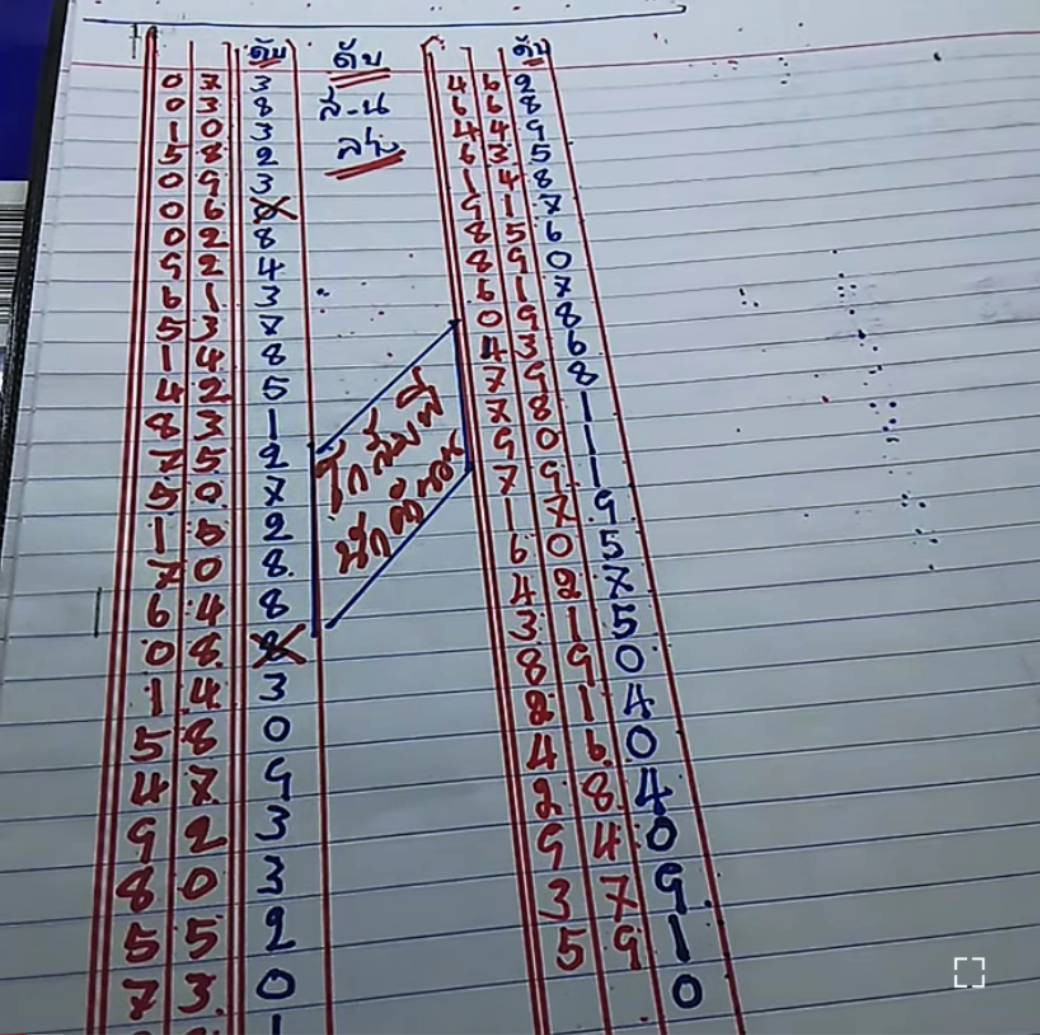 ดับ ดับ ดับ
0 7 3 ส-น 4 6 2
0 3 8 ล่าง 6 6 8
1 0 3 4 4 9
5 8 2 6 3 5
0 9 3 1 4 8
0 6 9 1 7
0 2 8 8 5 6
9 2 4 8 9 0
6 1 3 6 1 7
5 3 7 0 9 8
1 4 8 4 3 6
4 2 5 7 9 8
8 3 1 7 8 1
7 5 2 9 0 1
5 0 7 7 9 1
1 6 2 1 7 9
7 0 8 6 0 5
6 4 8 4 2 7
0 8 8 3 1 5
1 4 3 8 9 0
5 8 0 2 1 4
4 7 9 4 6 0
9 2 3 2 8 4
8 0 3 9 4 0
5 5 2 3 7 9
7 3 0 5 9 1
1 0